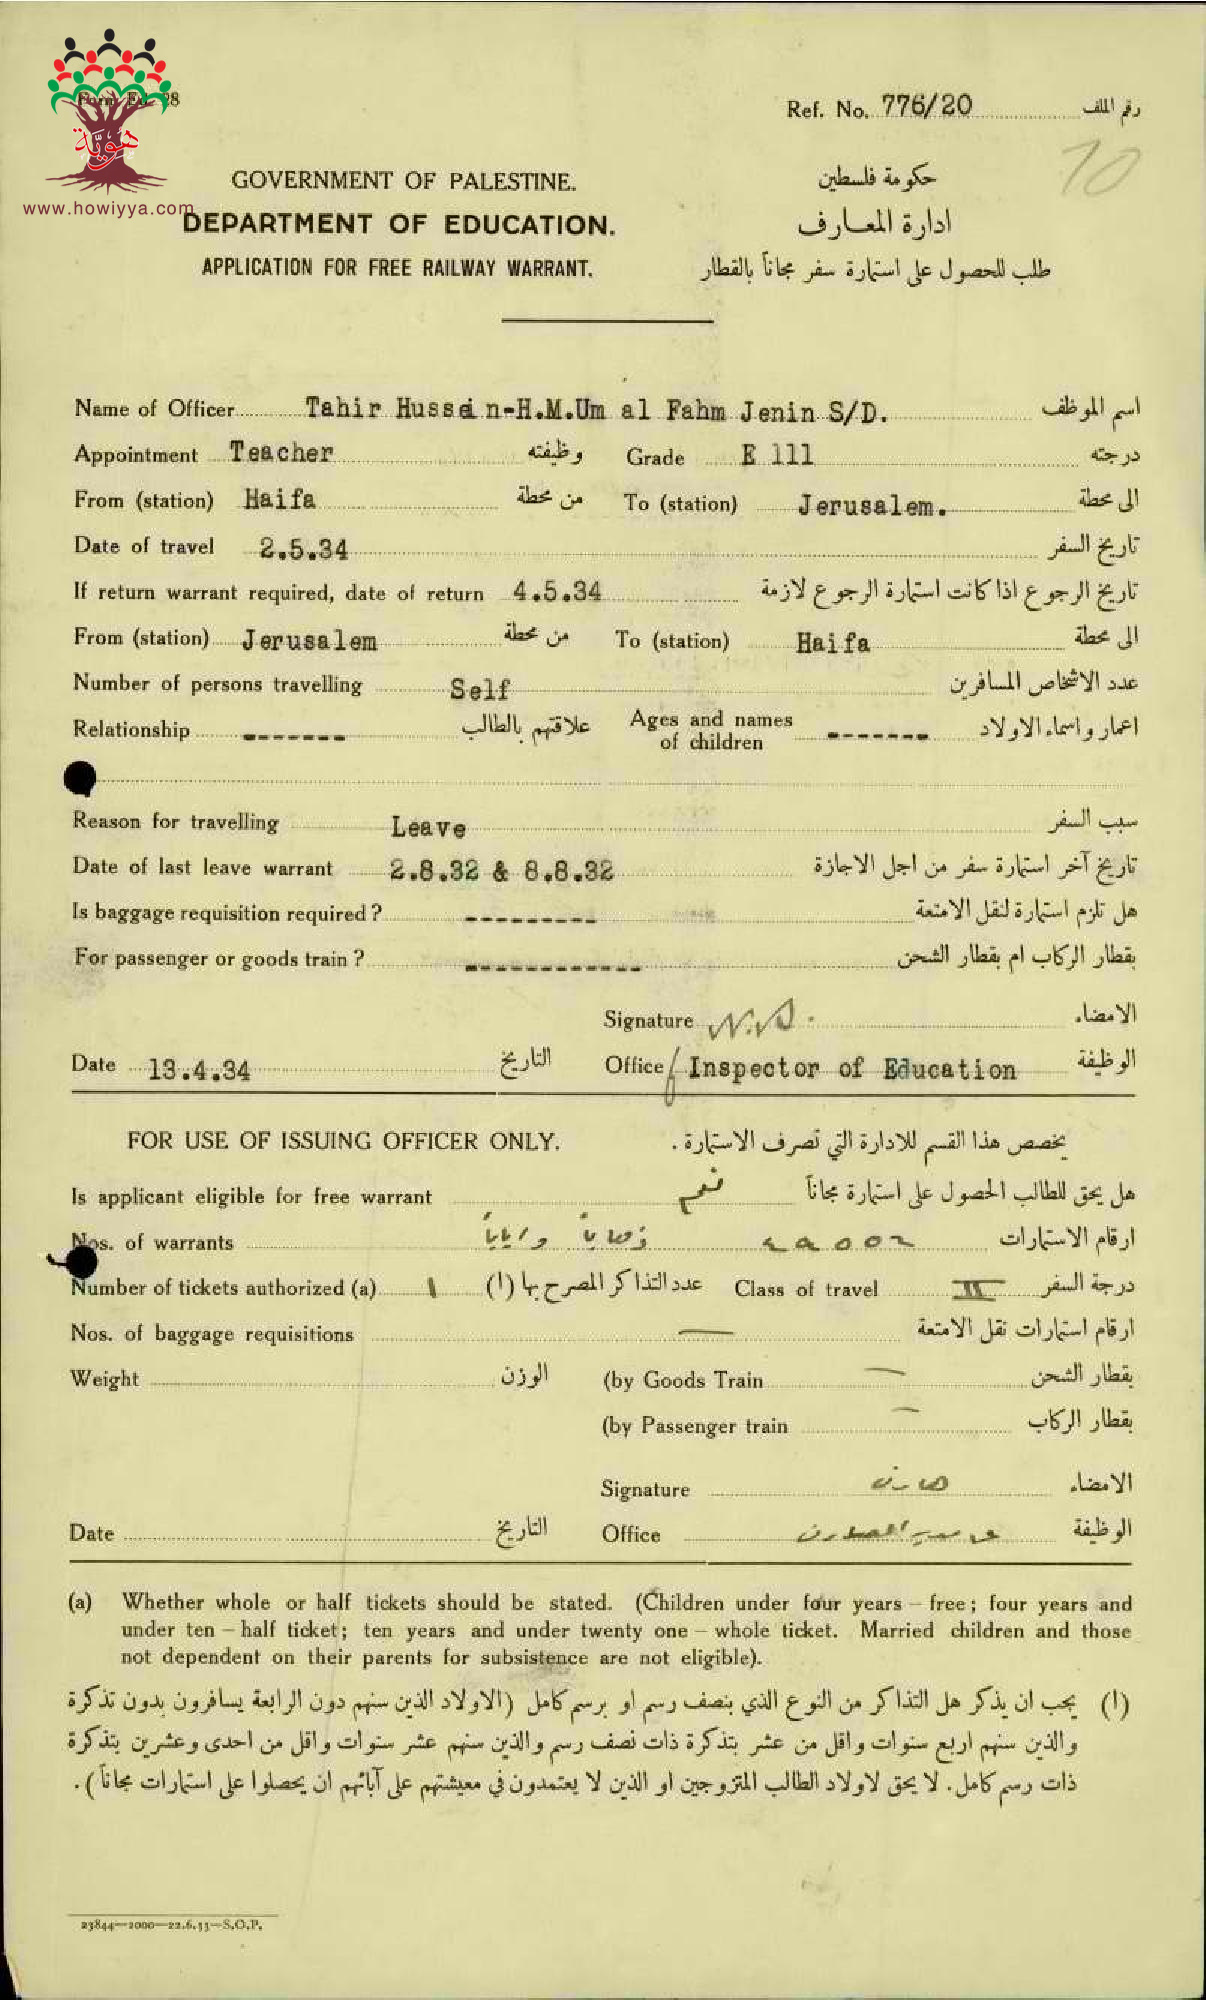 هَوِيَّة
www.howiyya.com
Form Ed. 28
Ref. No. 776/20 رقم الملف
10
GOVERNMENT OF PALESTINE. حكومة فلسطين
DEPARTMENT OF EDUCATION. ادارة المعارف
APPLICATION FOR FREE RAILWAY WARRANT. طلب للحصول على استمارة سفر مجاناً بالقطار
Name of Officer Tahir Hussein-H.M.Um al Fahm Jenin S/D. اسم الموظف
Appointment Teacher وظيفته Grade E 111 درجته
From (station) Haifa من محطة To (station) Jerusalem. الى محطة
Date of travel 2.5.34 تاريخ السفر
If return warrant required, date of return 4.5.34 تاريخ الرجوع اذا كانت استمارة الرجوع لازمة
From (station) Jerusalem من محطة To (station) Haifa الى محطة
Number of persons travelling Self عدد الاشخاص المسافرين
Relationship ------- علاقتهم بالطالب Ages and names of children ------- اعمار واسماء الاولاد
Reason for travelling Leave سبب السفر
Date of last leave warrant 2.8.32 & 8.8.32 تاريخ آخر استمارة سفر من اجل الاجازة
Is baggage requisition required ? --------- هل تلزم استمارة لنقل الامتعة
For passenger or goods train ? ------------ بقطار الركاب ام بقطار الشحن
Signature الامضاء
Date 13.4.34 التاريخ Office f Inspector of Education الوظيفة
FOR USE OF ISSUING OFFICER ONLY. يخصص هذا القسم للادارة التي تصرف الاستمارة .
Is applicant eligible for free warrant نعم هل يحق للطالب الحصول على استمارة مجاناً
Nos. of warrants ذهاباً واياباً ارقام الاستمارات
Number of tickets authorized (a) ١ عدد التذاكر المصرح بها (ا) Class of travel II درجة السفر
Nos. of baggage requisitions — ارقام استمارات نقل الامتعة
Weight الوزن (by Goods Train — بقطار الشحن
(by Passenger train — بقطار الركاب
Signature الامضاء
Date التاريخ Office ع مدير المعارف الوظيفة
(a) Whether whole or half tickets should be stated. (Children under four years – free; four years and
under ten – half ticket; ten years and under twenty one – whole ticket. Married children and those
not dependent on their parents for subsistence are not eligible).
(ا) يجب ان يذكر هل التذاكر من النوع الذي بنصف رسم او برسم كامل (الاولاد الذين سنهم دون الرابعة يسافرون بدون تذكرة
والذين سنهم اربع سنوات واقل من عشر بتذكرة ذات نصف رسم والذين سنهم عشر سنوات واقل من احدى وعشرين بتذكرة
ذات رسم كامل. لا يحق لاولاد الطالب المتزوجين او الذين لا يعتمدون في معيشتهم على آبائهم ان يحصلوا على استمارات مجاناً).
23844—2000—22.6.33—S.O.P.